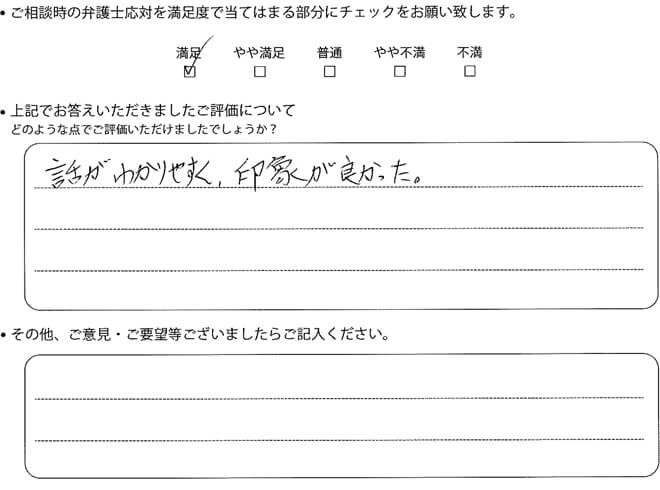 • ご相談時の弁護士応対を満足度で当てはまる部分にチェックをお願い致します。
満足 やや満足 普通 やや不満 不満
☑ □ □ □ □
• 上記でお答えいただきましたご評価について
どのような点でご評価いただけましたでしょうか？
話がわかりやすく、印象が良かった。
• その他、ご意見・ご要望等ございましたらご記入ください。